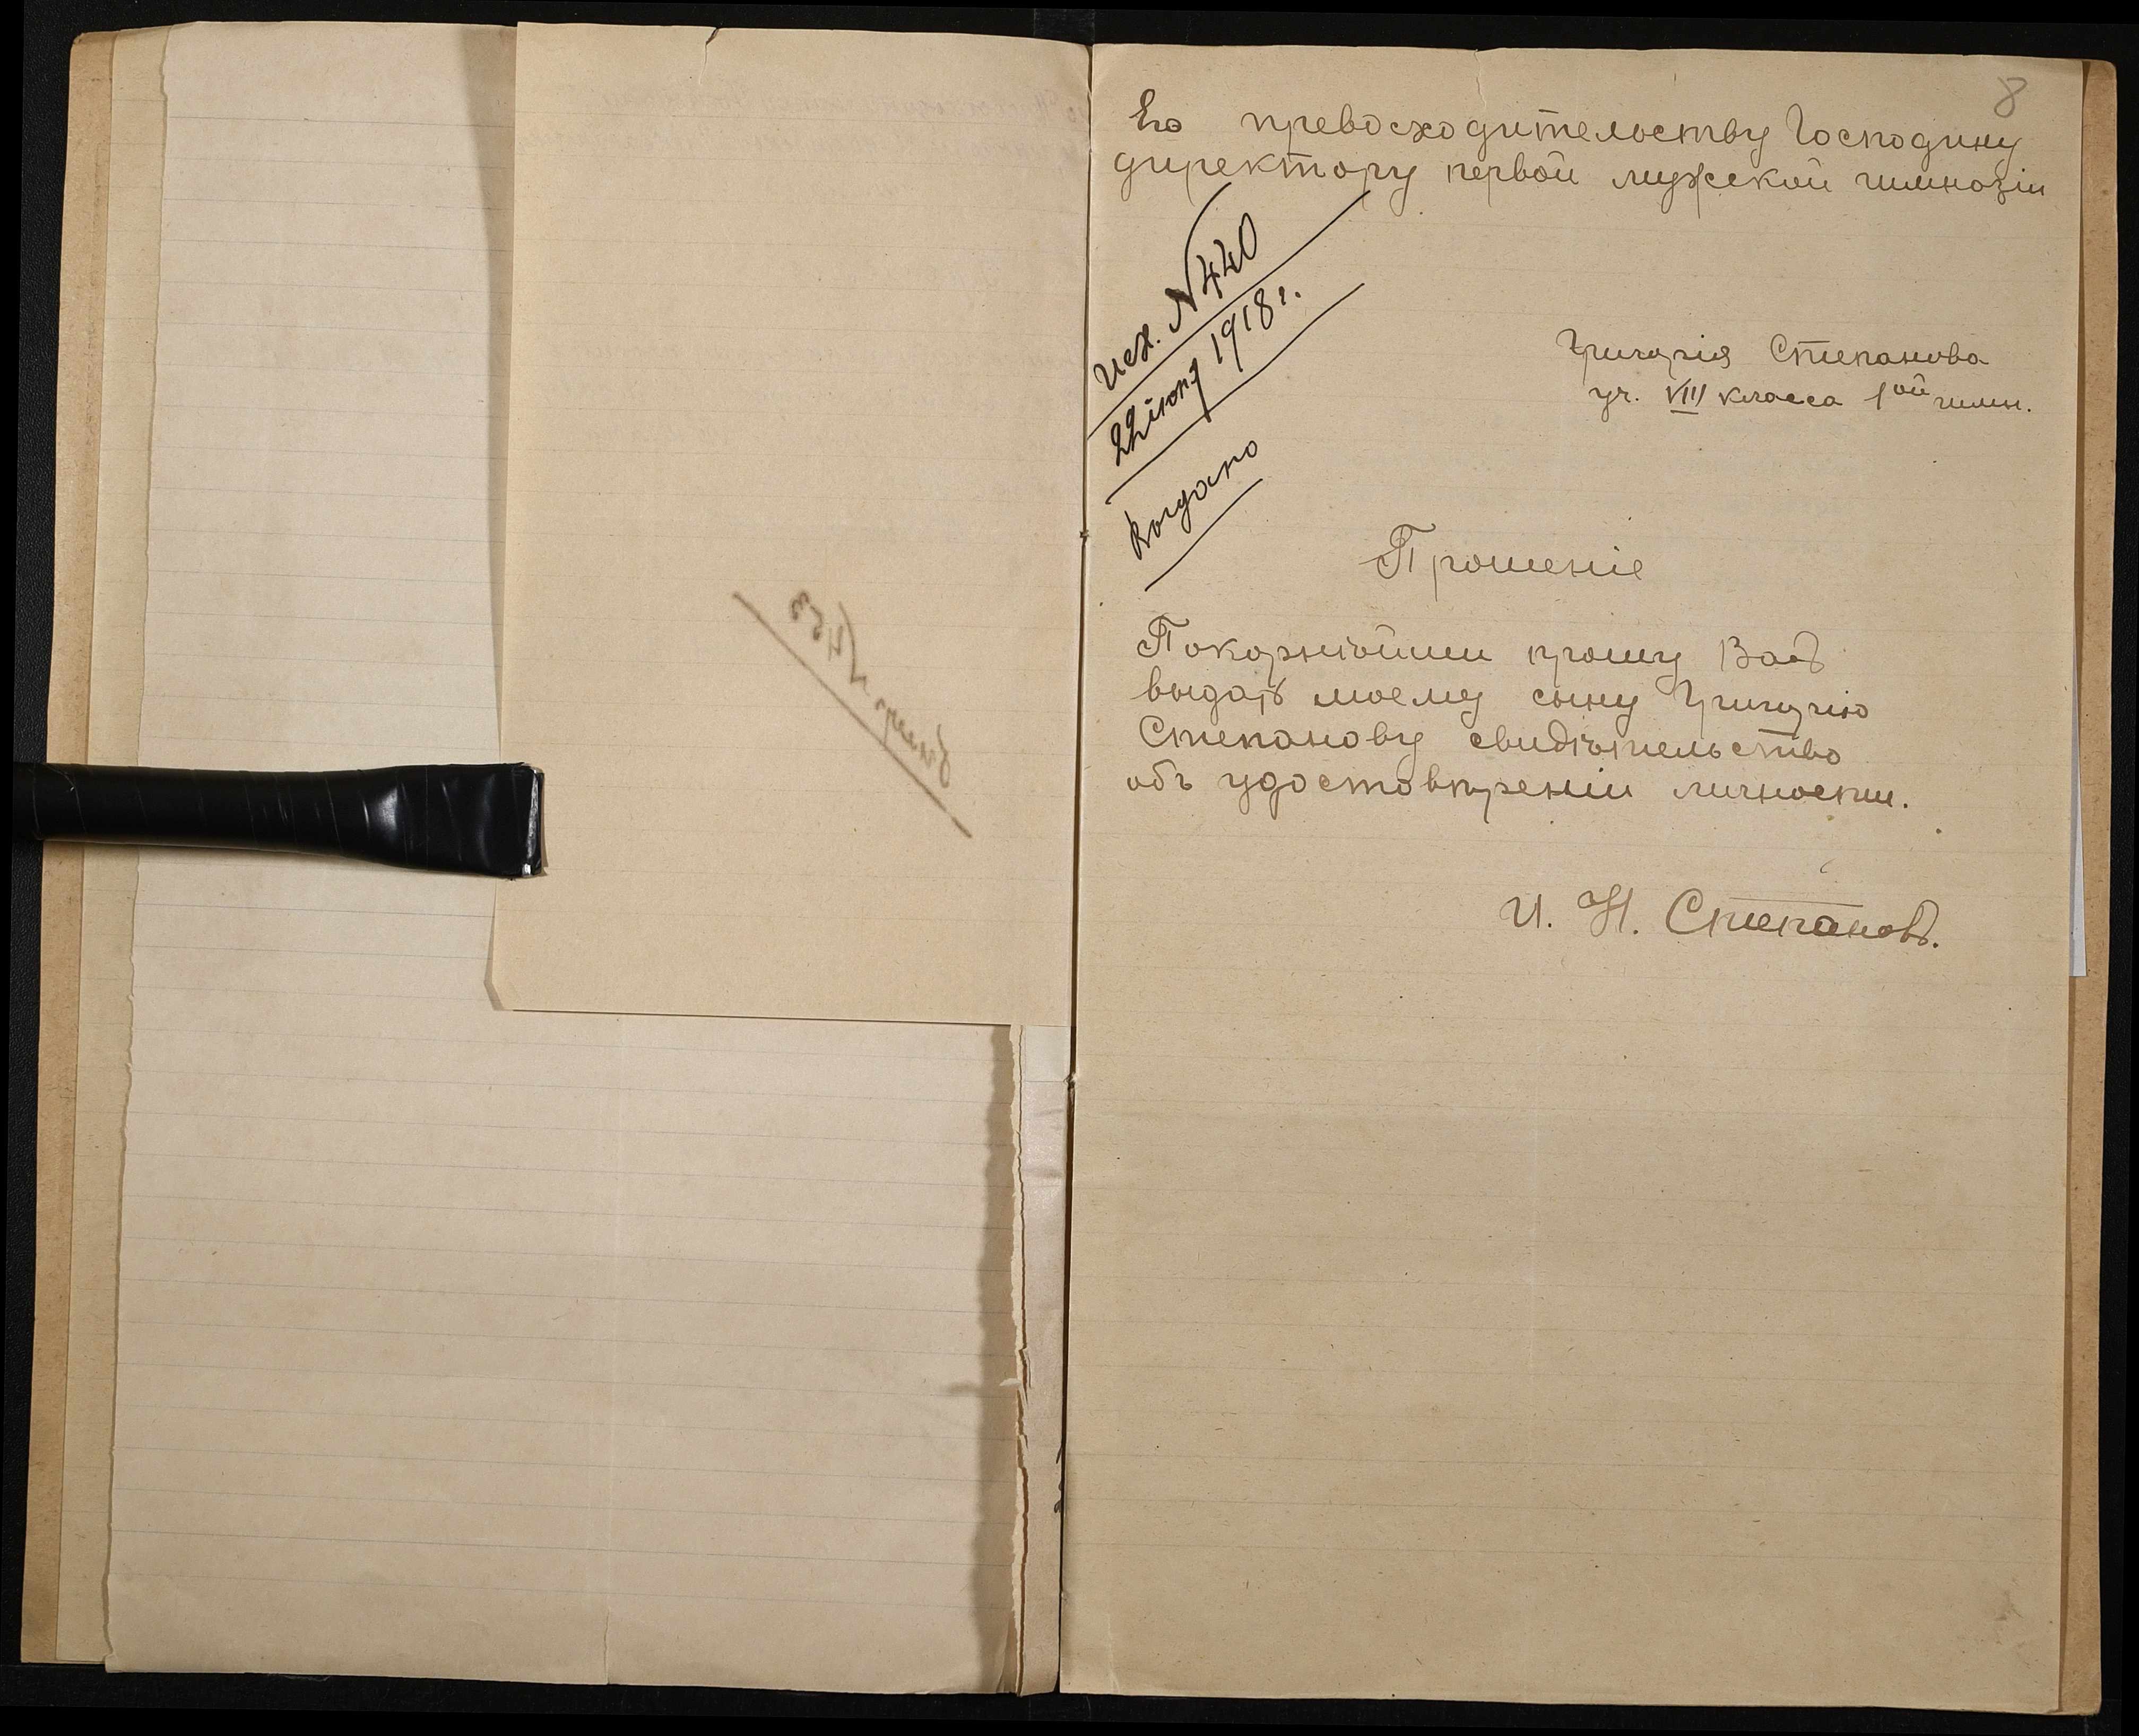 8
Его превосходительству Господину
директору первой мужской гимназіи
исх. № 440
22 іюня 1918 г.
Выдано
Григорія Степанова
уч. VIII класса 1ой гимн.
Прошеніе
Покорнѣйши прошу Васъ
выдать моему сыну Григорію
Степанову свидѣтельство
объ удостовѣреніи личности.
И. Н. Степановъ.